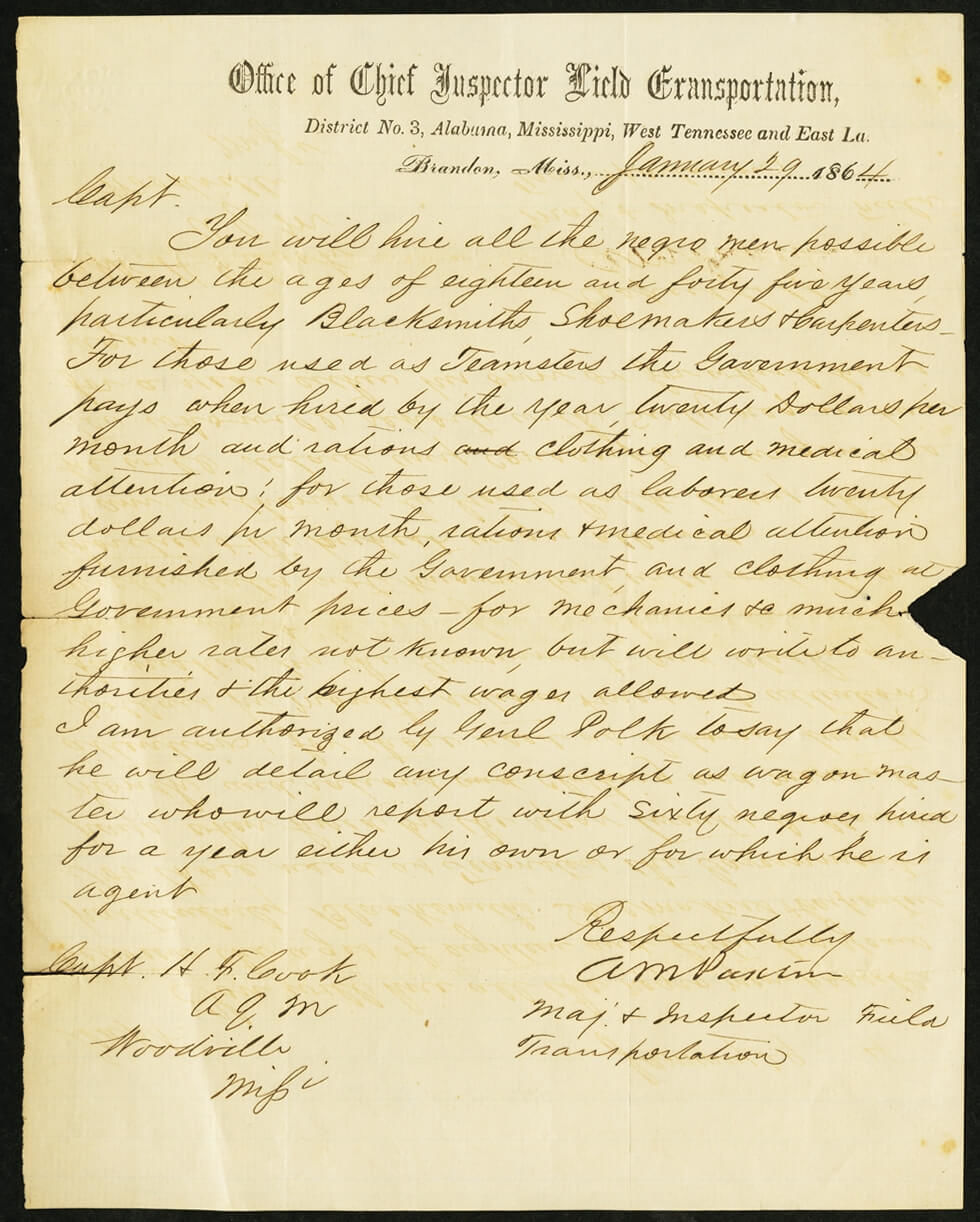 Office of Chief Inspector Field Transportation,
District No. 3, Alabama, Mississippi, West Tennessee and East La.
Brandon, Miss., January 29 1864
Capt.
You will hire all the negro men possible
between the ages of eighteen and forty five years,
particularly Blacksmiths, Shoemakers & Carpenters_
For those used as Teamsters the Government
pays when hired by the year, twenty Dollars per
month and rations and clothing and medical
attention; for those used as laborers twenty
dollars pr month, rations & medical attention
furnished by the Government, and clothing at
Government prices - for mechanics &c much
higher rates not known, but will write to au-
thorities & the highest wages allowed
I am authorized by Genl Polk to say that
he will detail any conscript as wagon mas-
ter who will report with Sixty negroes, hired
for a year either his own or for which he is
agent
Respectfully
A M Paxton
Maj. & Inspector Field
Transportation
Capt. H. F. Cook
A Q M
Woodville
Missi